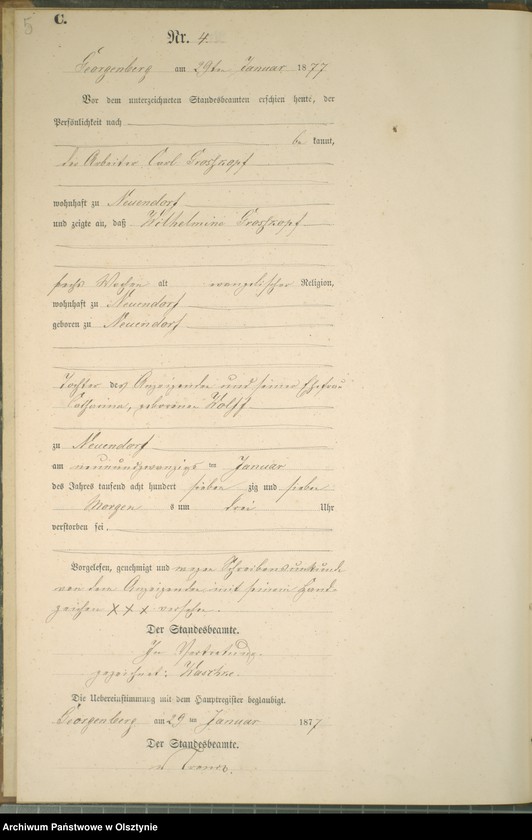 5
C.
Nr. 4
Georgenberg am 29ten Januar 1877
Vor dem unterzeichneten Standesbeamten erschien heute, der
Persönlichkeit nach
be kannt,
der Arbeiter Carl Groszkopf
wohnhaft zu Neuendorf
und zeigte an, daß Wilhelmine Groszkopf
sechs Wochen alt evangelischer Religion,
wohnhaft zu Neuendorf
geboren zu Neuendorf
Tochter des Anzeigenden und seiner Ehefrau
Catharina, geborenen Wolff
zu Neuendorf
am neunundzwanzigsten Januar
des Jahres tausend acht hundert sieben zig und sieben
Morgens um drei Uhr
verstorben sei.
Vorgelesen, genehmigt und wegen Schreibensunkunde
von dem Anzeigenden mit seinem Hand-
zeichen XXX versehen.
Der Standesbeamte.
In Vertretung.
gezeichnet:
Die Uebereinstimmung mit dem Hauptregister beglaubigt.
Georgenberg am 29ten Januar 1877
Der Standesbeamte.
Archiwum Państwowe w Olsztynie